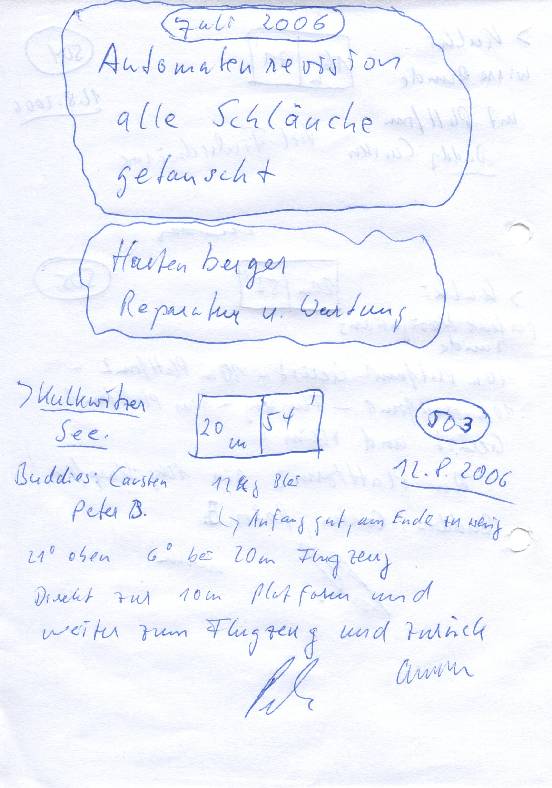 Juli 2006
Automatenrevision
alle Schläuche
getauscht
Hartenberger
Reparatur u. Wartung
> Kulkwitzer
See.
20 m 54'
503
12.8.2006
Buddies: Carsten 12kg Blei
Peter B. ↳ Anfang gut, am Ende zu wenig
21° oben 6° bei 20m Flugzeug
Direkt zur 10m Platform und
weiter zum Flugzeug und zurück